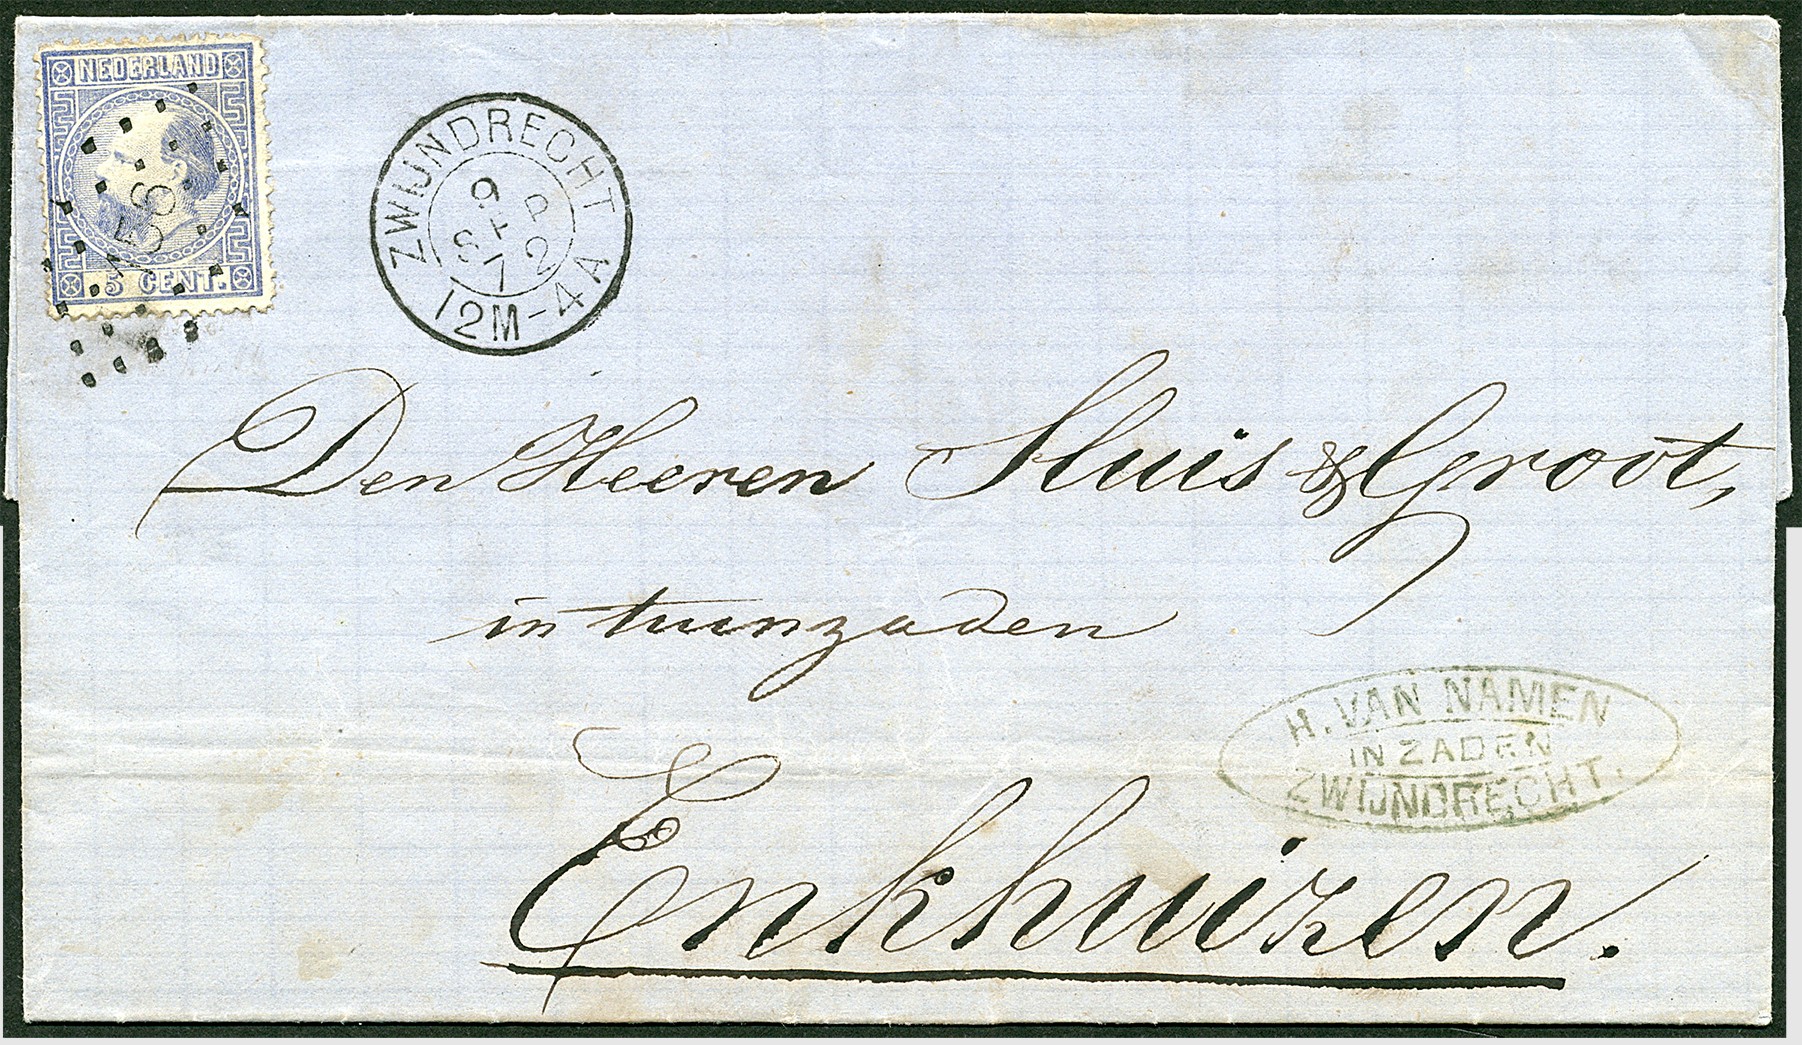 NEDERLAND
5 CENT.
156
ZWIJNDRECHT
9 SEP 72
12M-4A
Den Heeren Sluis & Groot,
in tuinzaden
H. VAN NAMEN
IN ZADEN
ZWIJNDRECHT.
Enkhuizen.